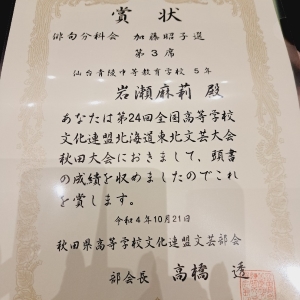 賞状
俳句分科会 加藤昭子選
第3席
仙台青陵中等教育学校 5年
岩瀬麻莉 殿
あなたは第24回全国高等学校
文化連盟北海道東北文芸大会
秋田大会におきまして、頭書
の成績を収めましたのでこれ
を賞します。
令和4年10月21日
秋田県高等学校文化連盟文芸部会
部会長 高橋 透